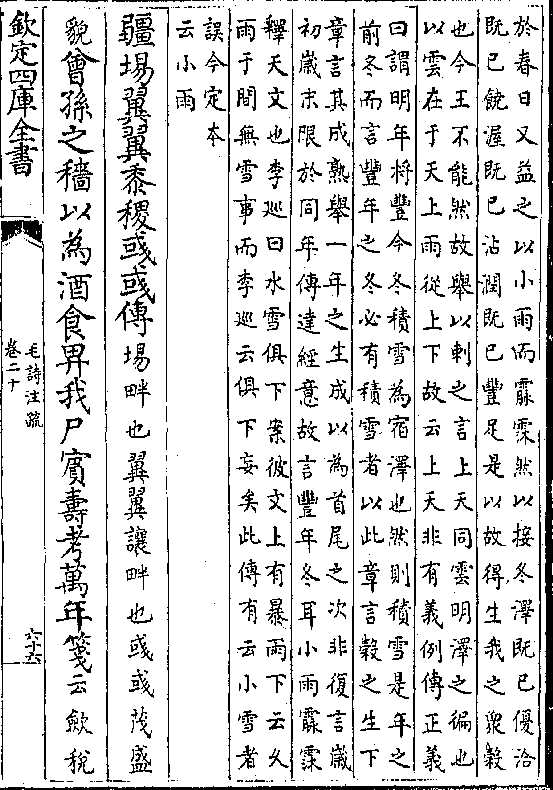 於春日又益之以小雨而霡霂然以接冬澤既已優洽
既已饒渥既已沾潤既已豐足是以故得生我之衆穀
也今王不能然故舉以刺之言上天同雲明澤之徧也
以雲在于天上雨從上下故云上天非有義例傳正義
曰謂明年將豐今冬積雪為宿澤也然則積雪是年之
前冬而言豐年之冬必有積雪者以此章言穀之生下
章言其成熟舉一年之生成以為首尾之次非復言歲
初歲末限於同年傳達經意故言豐年冬耳小雨霡霂
釋天文也李巡曰水雪俱下案彼文上有暴雨下云久
雨于間無雪事而李巡云俱下妄矣此傳有云小雪者
誤今定本
云小雨
疆埸翼翼黍稷彧彧傳埸畔也翼翼讓畔也彧彧茂盛
貌曾孫之穡以為酒食畀我尸賓壽考萬年箋云斂稅
欽定四庫全書
毛詩注疏
卷二十
六十六